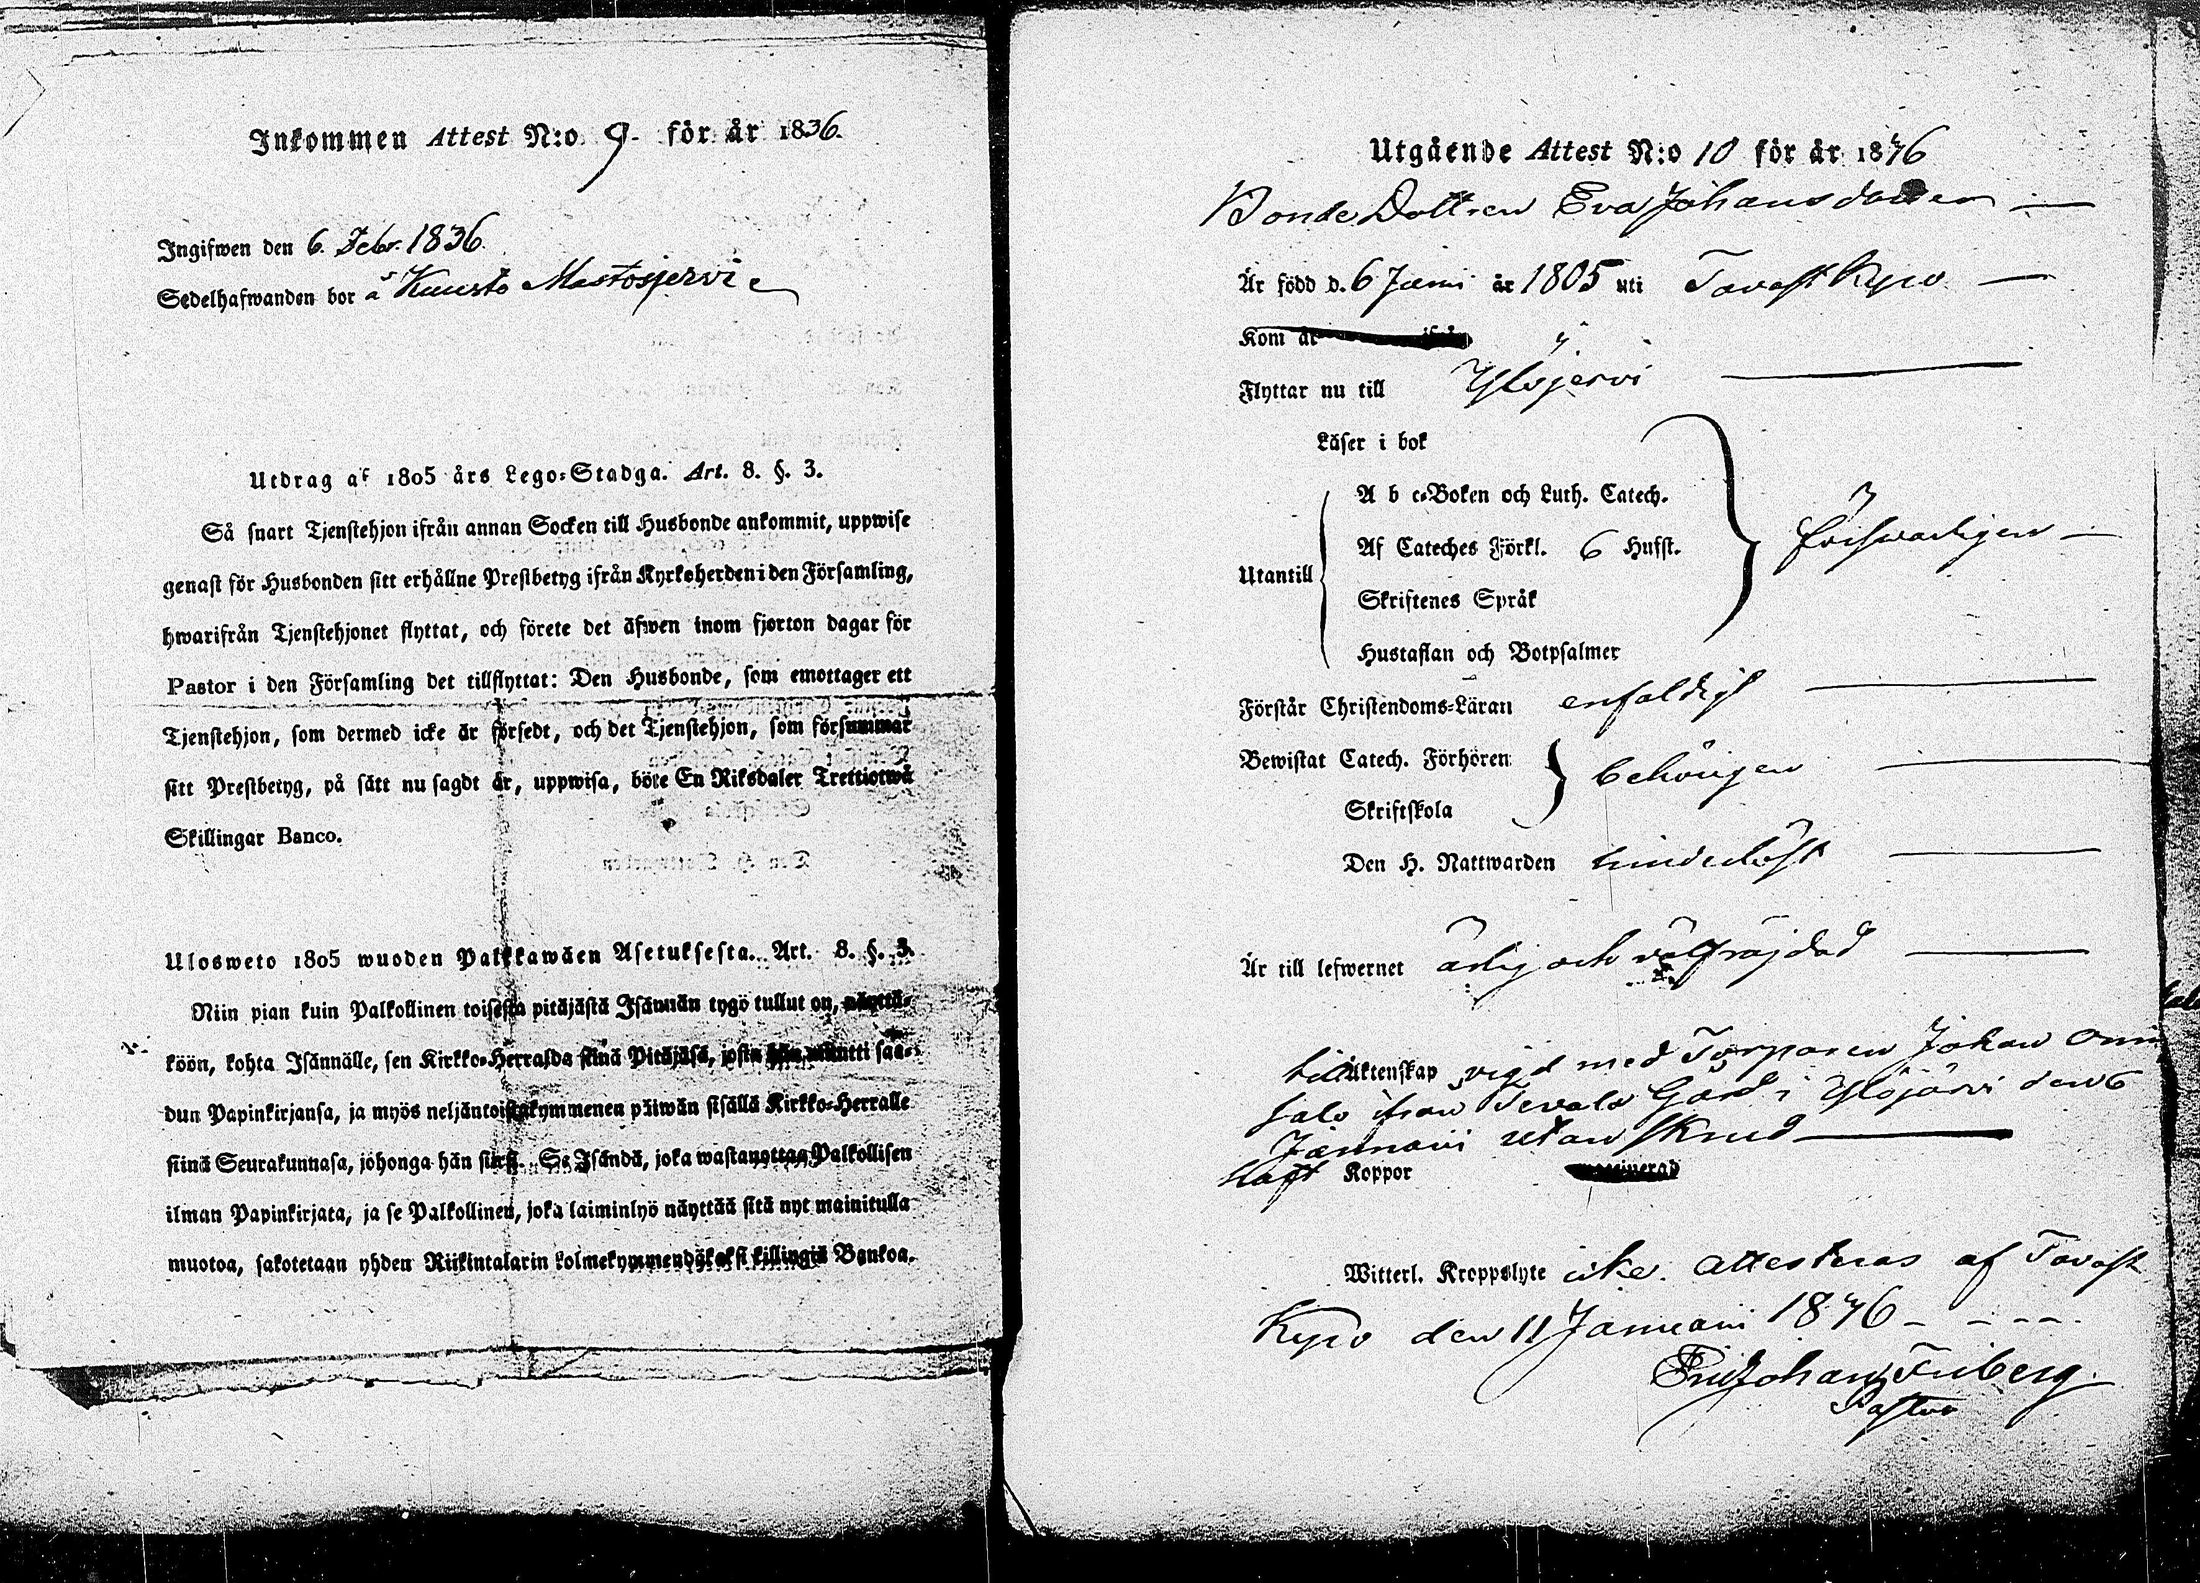 Inkommen Attest N:o 9. för år 1836.
Ingifwen den 6. Febr. 1836.
Sedelhafwanden bor å Kuusto Mastosjervi
Utdrag af 1805 års Lego-Stadga. Art. 8. §. 3.
Så snart Tjenstehjon ifrån annan Socken till Husbonde ankommit, uppwise
genast för Husbonden sitt erhållne Prestbetyg ifrån Kyrkoherden i den Församling,
hwarifrån Tjenstehjonet flyttat, och förete det äfwen inom fjorton dagar för
Pastor i den Församling det tillflyttat: Den Husbonde, som emottager ett
Tjenstehjon, som dermed icke är försedt, och det Tjenstehjon, som försummar
sitt Prestbetyg, på sätt nu sagdt är, uppwisa, böte En Riksdaler Trettiotwå
Skillingar Banco.
Ulosweto 1805 wuoden Palkkawäen Asetuksesta. Art. 8. §. 3.
Niin pian kuin Palkollinen toisesta pitäjästä Isännän tygö tullut on, näyttä-
köön, kohta Isännälle, sen Kirkko-Herralda siinä Pitäjäsä, josta hän muutti saa-
dun Papinkirjansa, ja myös neljäntoistakymmenen päiwän sisällä Kirkko-Herralle
siinä Seurakunnasa, johonga hän siirsi. Se Isändä, joka wastanottaa Palkollisen
ilman Papinkirjata, ja se Palkollinen, joka laiminlyö näyttää sitä nyt mainitulla
muotoa, sakotetaan yhden Riikintalarin kolmekymmendäkaksi killingiä Bankoa.
Utgående Attest N:o 10 för år 1836
Bonde Dottren Eva Johansdotter
Är född d. 6 Juni år 1805 uti Tavast Kyro
Kom år ifrån
Flyttar nu till Ylöjervi
Läser i bok
A b c-Boken och Luth. Catech.
Af Cateches Förkl. 6 Hufst. försvarligen
Utantill
Skriftenes Språk
Hustaflan och Botpsalmer
Förstår Christendoms-Läran enfaldigt
Bewistat Catech. Förhören behörigen
Skriftskola
Den H. Nattwarden hinderlöst
Är till lefwernet ärlig och välfräjdad
till Äktenskap vigd med Torparen Johan
salo ifrån Gård i Ylöjärvi den 6
Januarii utan skrud
Haft Koppor vaccinerad
Witterl. Kroppslyte icke. Attesteras af Tavast
Kyro den 11 Januarii 1836
Johan Friberg.
Pastor